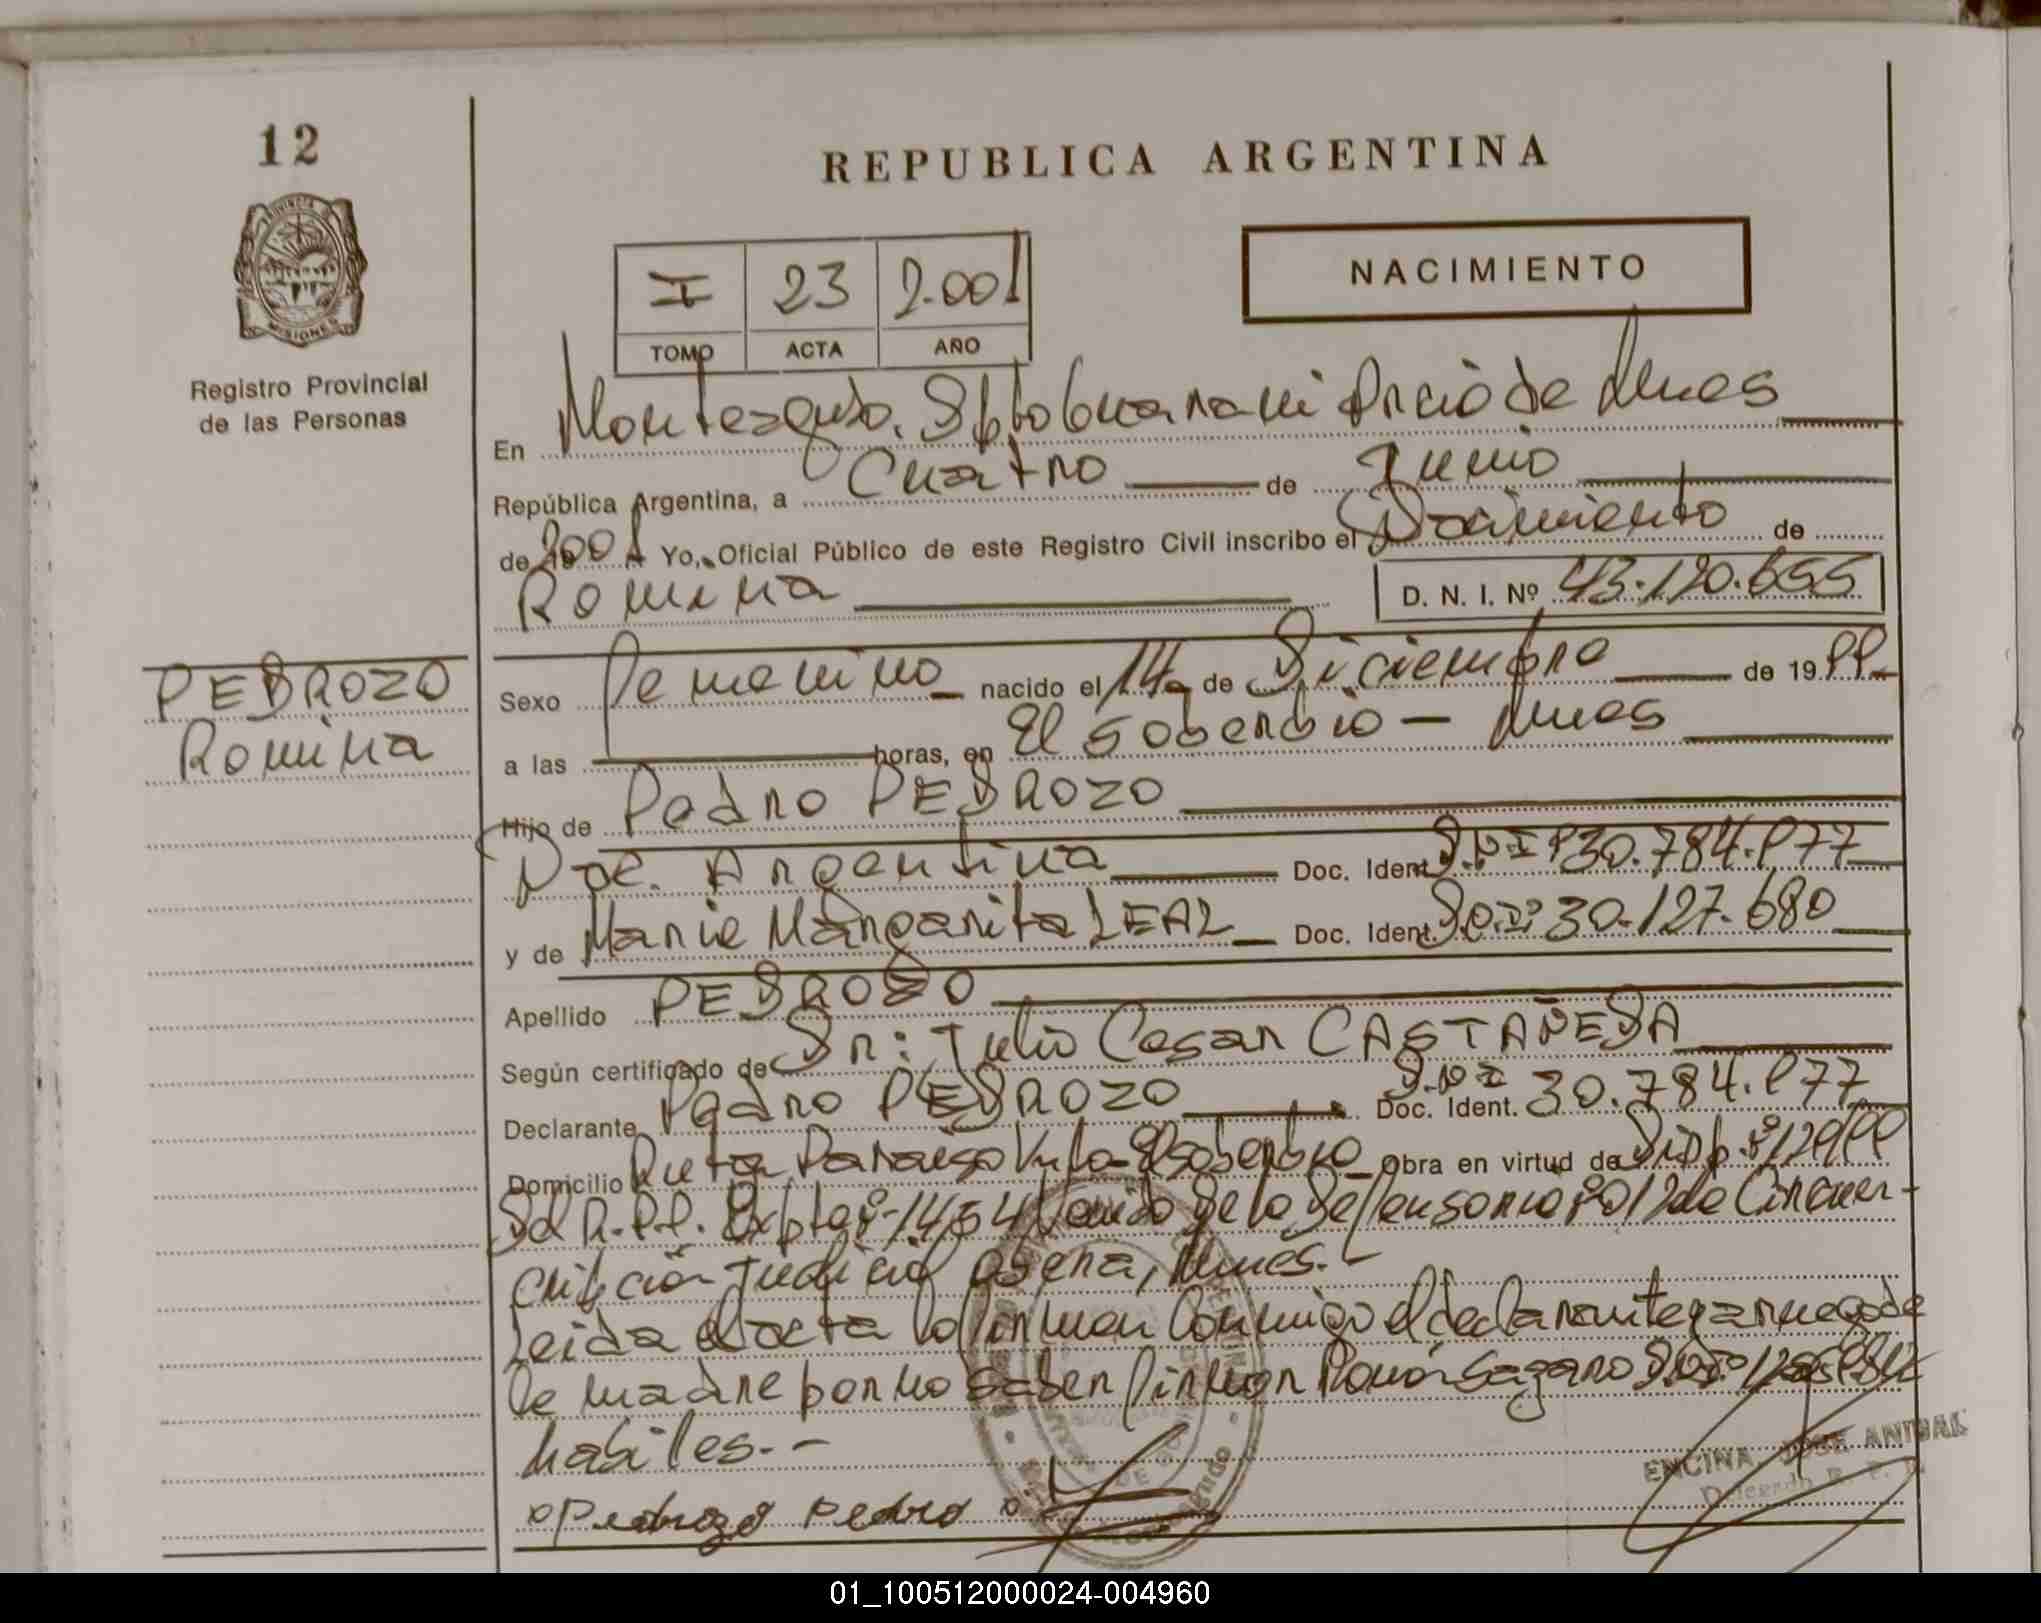 12
REPUBLICA ARGENTINA
PROVINCIA DE
MISIONES
Registro Provincial
de las Personas
I 23 2.001
TOMO ACTA AÑO
NACIMIENTO
En Monteagudo. Dpto Guarani Prcio de Mnes
República Argentina, a Cuatro de Junio
de 2001 Yo, Oficial Público de este Registro Civil inscribo el Nacimiento de
Romina D. N. I. Nº 43.120.655
PEDROZO
Romina
Sexo Femenino nacido el 14 de Diciembre de 1999
a las horas, en El Soberbio - Mnes
Hijo de Pedro PEDROZO
Nac. Argentina Doc. Ident. D.N.I 30.784.977
y de Maria Margarita LEAL Doc. Ident. 30.127.680
Apellido PEDROZO
Según certificado de Dr: Julio Cesar CASTAÑEDA
Declarante Pedro PEDROZO Doc. Ident. D.N.I 30.784.977
Domicilio Ruta Paraiso Km El Soberbio Obra en virtud de Disp. 129/99
Del R.P.P. Expte 1454 Venido de la Defensoria de Circuns-
cripción Judicial Oberá, Mnes.-
Leida el acta la firman conmigo el declarante y a ruego de
la madre por no saber firmar Ramón
habiles.-
Pedrozo Pedro
ENCINA, JOSE ANIBAL
Delegado R. P. P.
01_100512000024-004960